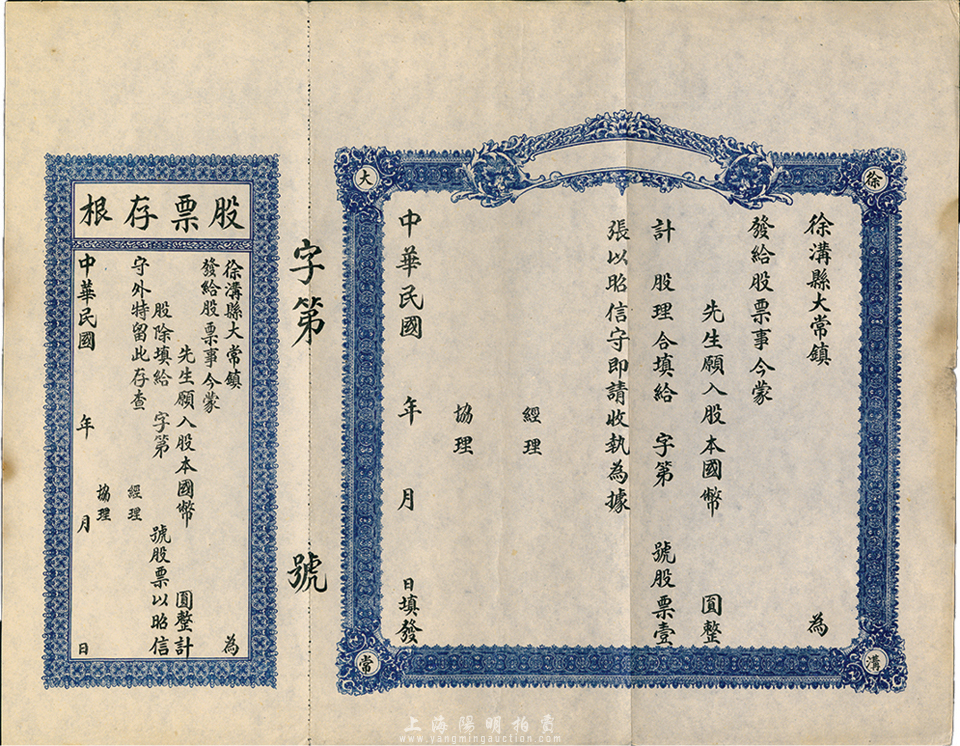 徐
溝
大
常
徐溝縣大常鎮 為
發給股票事今蒙
先生願入股本國幣 圓整
計 股理合填給 字第 號股票壹
張以昭信守即請收執為據
經理
協理
中華民國 年 月 日填發
字第 號
股票存根
徐溝縣大常鎮 為
發給股票事今蒙
先生願入股本國幣 圓整計
股除填給 字第 號股票以昭信
守外特留此存查
經理
協理
中華民國 年 月 日
上海陽明拍賣
www.yangmingauction.com